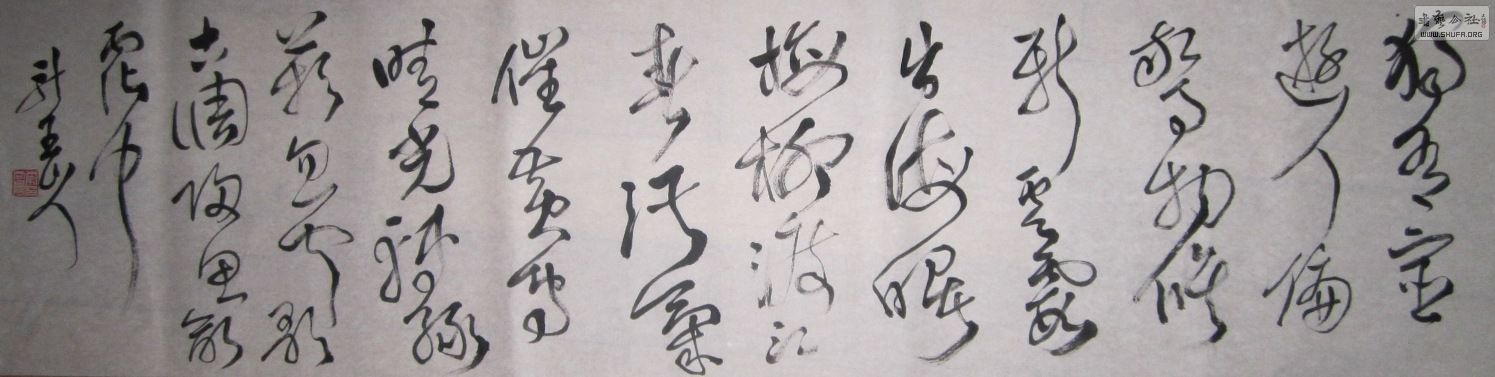 独有宦
遊人偏
驚物候
新雲霞
出海曙
梅柳渡江
春淑氣
催黄鳥
晴光轉綠
蘋忽聞歌
古調歸思欲
霑巾
山人
書藝公社
WWW.SHUFA.ORG